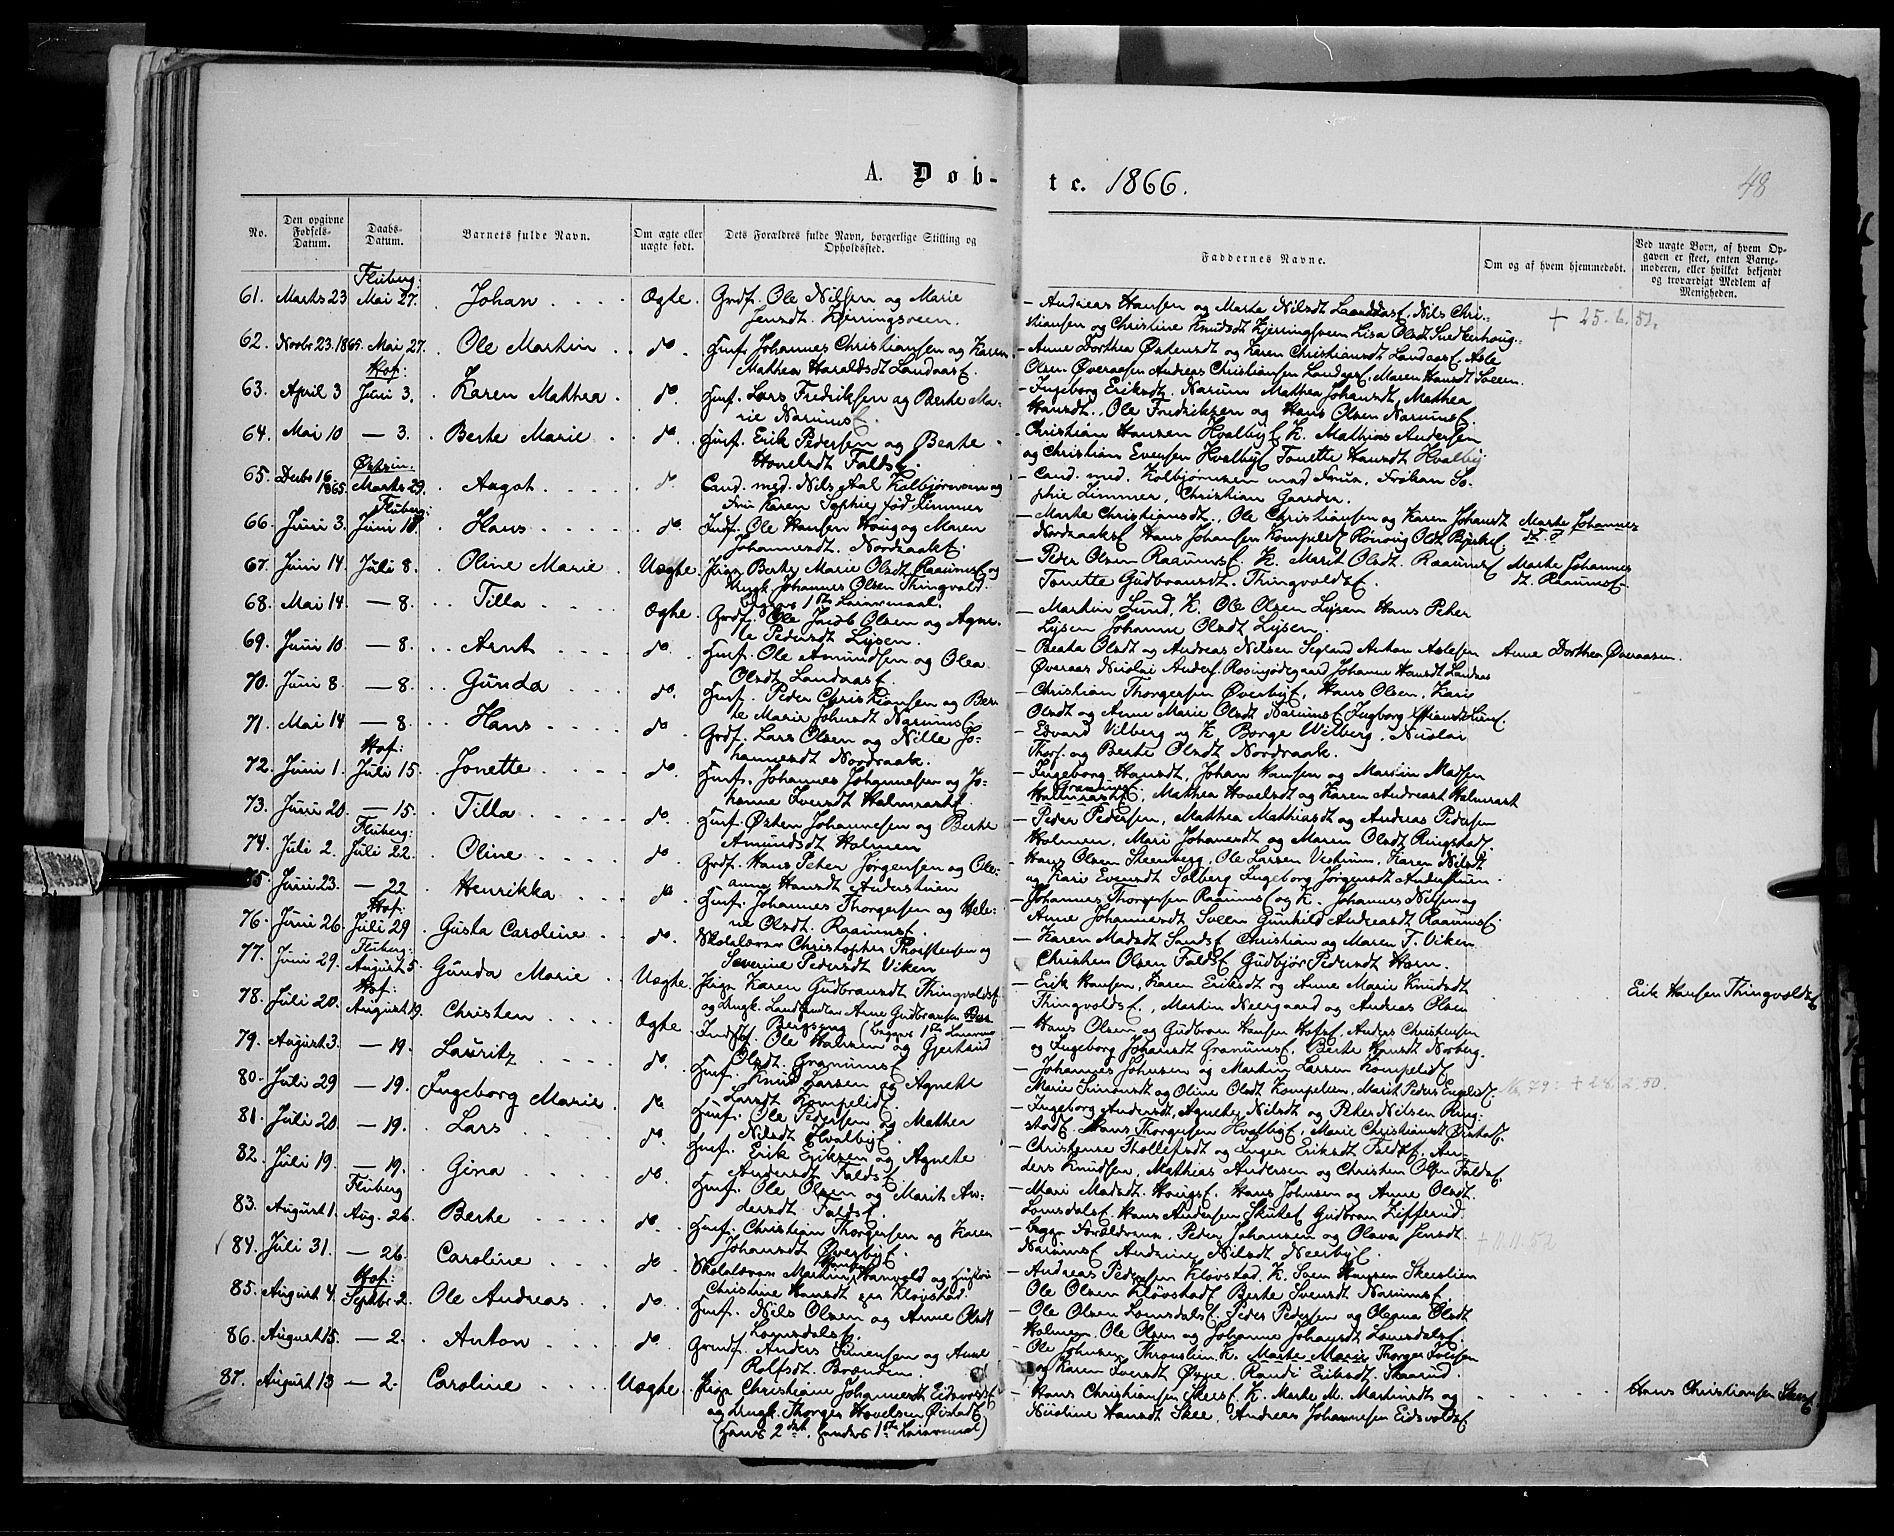 A. Døb-
te. 1866.
48
No.
Den opgivne Fødsels-Datum.
Daabs-Datum.
Barnets fulde Navn.
Om ægte eller uægte født.
Dets Forældres fulde Navn, borgerlige Stilling og Opholdssted.
Faddernes Navne.
Om og af hvem hjemmedøbt.
Ved uægte Børn, af hvem Opgaven er skeet, enten Barnemoderen, eller hvilket bekjendt og troværdigt Medlem af Menigheden.
Fluberg:
61. Marts 23 Mai 27. Johan Ægte Grdf. Ole Nilsen og Marie
Jensdt. Kjerringsveen.
- Andreas Hansen og Marte Nilsdt Landaas, Nils Chri-
stiansen og Christine Knudsdt Kjerringsveen Lisa Olsdt
62. Novbr 23. 1865. Mai 27. Ole Martin do. Husf. Johannes Christiansen og Karen
Mathea Haraldsdt Landaas.
- Anne Dorthea Østensdt og Karen Christiansdt Landaas, Asle
Olsen Øveraasen Andreas Christiansen Landaas, Maren Hansdt Sveen.
Hof:
63. April 3 Juni 3. Karen Mathea do. Husf. Lars Fredriksen og Berte Ma-
rie Narums.
- Ingeborg Eriksdt. Narum Mathea Johansdt, Mathea
Hansdt., Ole Fredriksen og Hans Olsen Narums.
64. Mai 10 — 3. Berte Marie do. Husf. Erik Pedersen og Beate
Hovelsdt Falds.
- Christian Hansen Hvalby K. Mathias Andersen
og Christian Evensen Hvalby Tonette Hansdt Hvalby
Østsin:
65. Decbr 16 1865. Marts 29. Aagot do Cand. med. Nils Aal Kolbjørnsen og
Frue Karen Sophie født Zimmer
- Cand. med. Kolbjørnsen med Frue, Frøken So-
phie Zimmer, Christian Gaarder.
Fluberg:
66. Juni 3. Juni 10. Hans do. Indf. Ole Hansen Haug og Maren
Johannesdt. Nordraak.
- Marte Christiansdt., Ole Christiansen og Karen Johansdt
Nordraak Hans Johansen Kompelid Rønnaug Olsdt Bjerke.
Marte Johannes
dt.
67. Juni 14 Juli 8. Oline Marie Uægte Pige Berte Marie Olsdt. Raaums og
Ungk. Johannes Olsen Thingvold.
Begges 1ste Leiermaal.
- Peder Olsen Raaums. K. Marit Olsdt. Raaums
Tonette Gudbrandsdt. Thingvolds.
Marte Johannes
dt. Raaums.
68. Mai 14. — 8. Tilla Ægte. Grdf. Ole Jacob Olsen og Agne-
te Pedersdt Lysen.
- Martin Lund, K. Ole Olsen Lysen Hans Peter
Lysen Johanne Olsdt Lysen.
69. Juni 10 — 8. Arnt do. Husf. Ole Amundsen og Olea
Olsdt Landaas.
- Beata Olsdt og Andreas Nilsen Anton Aslesen
Øveraas Nicolai Johanne Hansdt Landaas
Anne Dorthea Øveraasen.
70. Juni 8 — 8. Gunda do. Husf. Peder Christiansen og Ber
te Marie Johnsdt Narums.
- Christian Thorgersen Øverby, Hans Olsen, Kari
Olsdt og Anne Marie Olsdt Narums Ingborg
71. Mai 14 — 8. Hans do. Grdf. Lars Olsen og Nille Jo-
hannesdt Nordraak.
- Edvard Vilberg og K. Borge Wilberg, Nicolai
Thors. og Berte Olsdt Nordraak.
Hof:
72. Juni 1. Juli 15. Jonette do. Husf. Johannes Johannesen og Jo-
hanne Iversdt Halmrast.
- Ingeborg Hansdt, Johan Hansen og Martin Madsen
Granums, Mathea Hovelsdt og Karen Andreasdt Halmrast
73. Juni 20. — 15. Tilla do. Husf. Østen Johannesen og Berte
Amundsdt Holmen
- Peder Pedersen, Mathea Mathiasdt og Andreas Pedersen
Holmen, Mari Johannesdt og Maren Olsdt Ringstad.
Fluberg:
74. Juli 2. Juli 22. Oline do. Grdf. Hans Peter Jørgensen og Ole-
anna Hansdt
- Hans Olsen Steenberg, Ole Larsen Vestrum, Karen Nilsdt
og Kari Evensdt Solberg Ingeborg Jørgensdt
75. Juni 23. — 22 Henrikka do. Husf. Johannes Thorgersen og Hele-
ne Olsdt. Raaums.
- Johannes Thorgersen Raaums og K. Johannes Nilsen og
Anne Johannesdt Sveen Gunhild Andreasdt Raaums.
Hof:
76. Juni 26. Juli 29 Gusta Caroline do. Skolelærer Christopher Thorstensen og
Severine Pedersdt Viken
- Karen Madsdt Sands Christian og Maren T. Viken
Christen Olsen Falds Gudbjør Pedersdt Horn.
Fluberg:
77. Juni 29. August 5. Gunda Marie Uægte. Pige Karen Gudbrandsdt Thingvolds
og Ungk. Landhandler Arne Gudbransen
Bergseng (Begges 1ste Leierm.
- Erik Hansen, Karen Eriksdt og Anne Marie Knudsdt
Thingvolds., Martin Neergaard og Andreas Olsen
Erik Hansen Thingvolds
Hof:
78. Juli 20. August 19. Christen Ægte. Indst. Ole Halvsen og Gjertrud
Olsdt. Granums
- Hans Olsen, og Gudbran Hansen Hofs, Anders Christensen
og Ingeborg Johansdt Granums, Berte Hansdt Norberg.
79. August 3. — 19. Lauritz do. Husf. Knud Larsen og Agnete
Larsdt Kompelid.
- Johannes Johnsen og Martin Larsen Kompelid
Marie Simensdt og Oline Olsdt Kompelien, Marit Peders
No 79: + 28.2.50.
80. Juli 29 — 19. Ingeborg Marie do. Husf. Ole Pedersen og Mathea
Nilsdt Hvalby.
- Ingeborg Andersdt, Agnethe Nilsdt og Peter Nilsen Ring-
stad, Hans Thorgersen Hvalby, Marie Christiansdt
81. Juli 20. — 19. Lars do. Husf. Erik Eriksen og Agnete
Andersdt Falds.
- Christense Thollefsdt og Inger Eriksdt Falds, An-
ders Knudsen, Mathias Andersen og Christen Olsen Falds.
82. Juli 19. — 19. Gina do. Husf. Ole Olsen og Marit An-
dersdt Falds.
- Mari Madsdt. Haugs. Hans Johnsen og Anne Olsdt.
Lomsdals Hans Andersen Skute Gudbran Zifferud.
Fluberg
83. August 1. Aug. 26. Berte do. Husf. Christian Thorgersen og Karen
Johansdt Øverby.
- Begge Forældrene, Peder Johansen og Olava Jensdt.
Narums Andrine Nilsdt Neerby.
+ 11.11.52
84. Juli 31. — 26. Caroline do. Skolelærer Martin Hansen Harvold og Hustru
Christine Hansdt Kløvstad
- Andreas Pedersen Kløvstad, K. Sven Hansen Skeeslien
Ole Olsen Kløvstad Berte Svensdt Narums.
Hof:
85. August 4. Septbr 2. Ole Andreas do. Husf. Nils Olsen og Anne Olsdt
Lomsdals.
- Ole Olsen Lomsdals, Peder Pedersen og Oleana Olsdt
Holmen Ole Olsen og Johanne Johansdt Lomsdals.
86. August 15. — 2. Anton do. Grmdf. Anders Simensen og Anne
Rolfsdt. Brænden.
- Ole Johnsen K. Marte Marie Thorger Iversen
og Karen Iversdt Øvne, Randi Eriksdt Skaarud.
87. August 13 — 2. Caroline Uægte. Pige Christiane Johannesdt Eidsvolds
og Ungk. Thorger Hovelsen Øistad
(Hans 2det, hendes 1ste Leiermaal)
- Hans Christiansen Skee. K. Marte M. Martinsdt og
Nicoline Hansdt Skee, Andreas Johannesen Eidsvolds
Hans Christiansen Skee
+ 25.6.51.